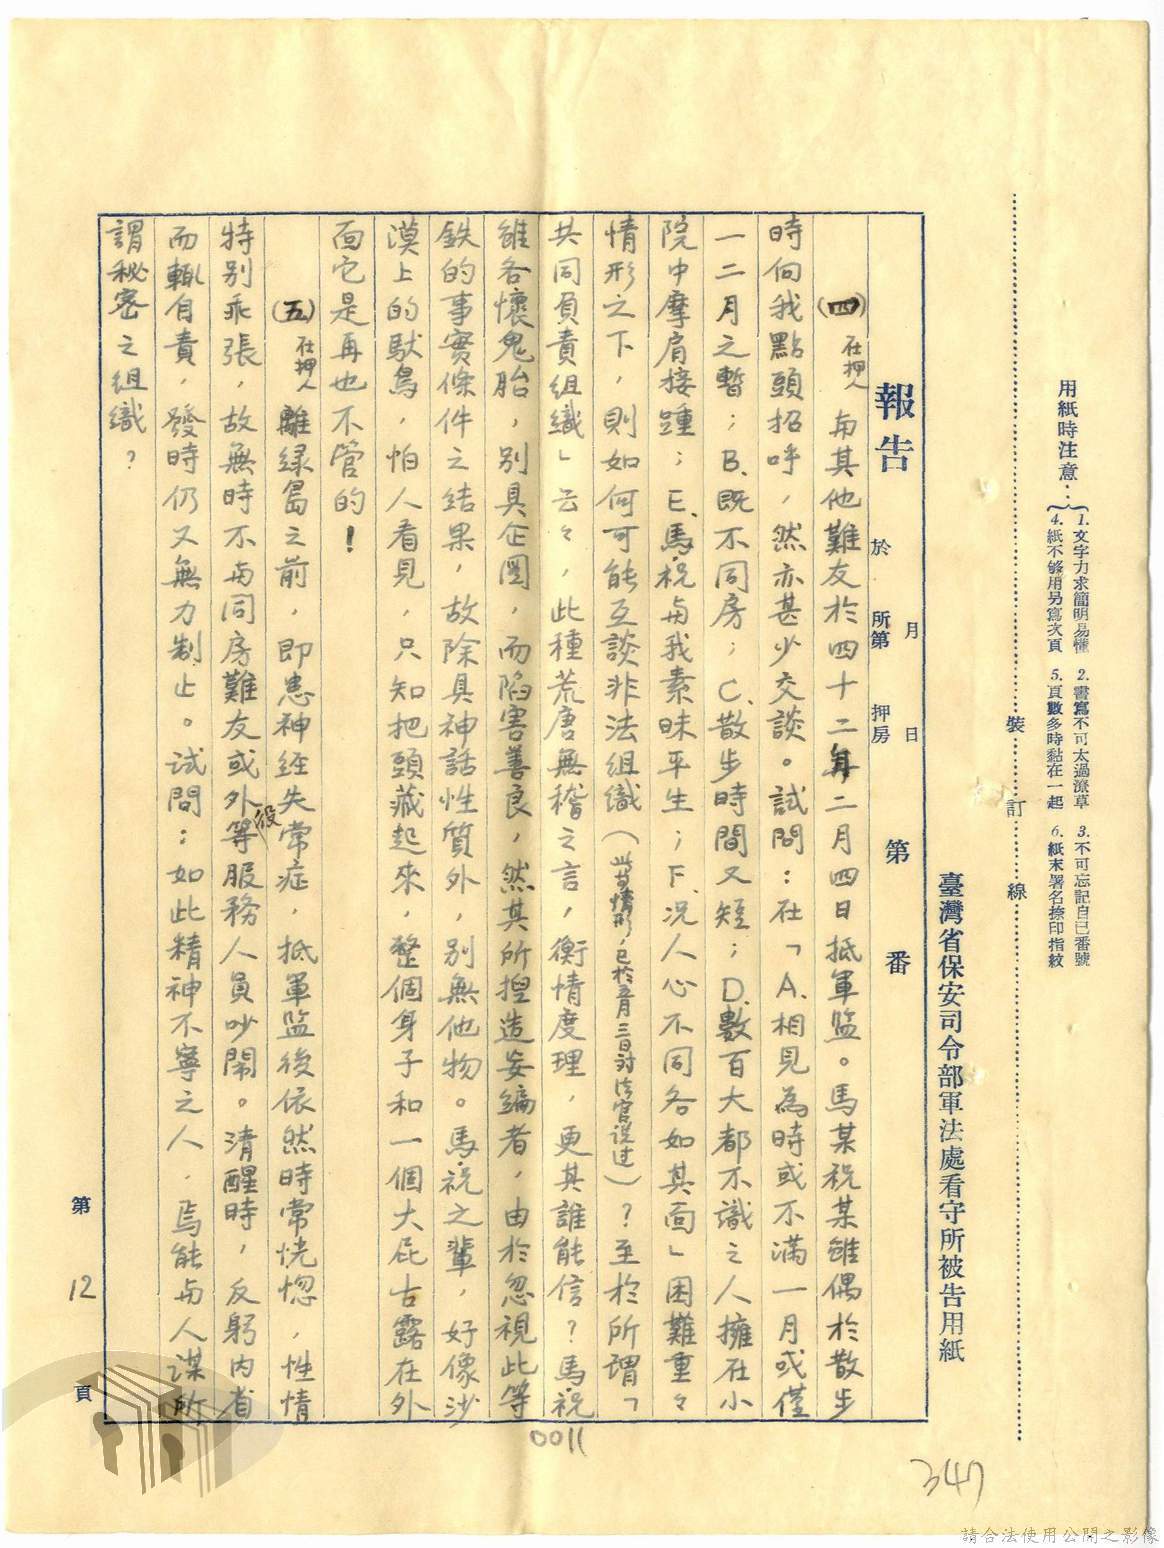 用紙時注意：
1. 文字力求簡明易懂 2. 書寫不可太過潦草 3. 不可忘記自己番號
4. 紙不够用另寫次頁 5. 頁數多時黏在一起 6. 紙末署名捺印指紋
裝訂線
臺灣省保安司令部軍法處看守所被告用紙
報告
於 月 日
所第 押房
第 番
(四)在押人 与其他難友於四十二年二月四日抵軍監。馬某祝某雖偶於散步
時向我點頭招呼，然亦甚少交談。試問：在「A.相見為時或不滿一月或僅
一二月之暫；B.既不同房；C.散步時間又短；D.數百大都不識之人擁在小
院中摩肩接踵；E.馬.祝与我素昧平生；F.况人心不同各如其面」困難重々
情形之下，則如何可能互談非法組織（此等情形，已於五月三日對法官説过）？至於所謂「
共同負責組織」云々，此種荒唐無稽之言，衡情度理，更其誰能信？馬.祝
雖各懷鬼胎，別具企圖，而陷害善良，然其所揑造妄编者，由於忽視此等
鉄的事實條件之结果，故除具神話性質外，別無他物。馬.祝之輩，好像沙
漠上的馱鳥，怕人看見，只知把頭藏起來，整個身子和一個大屁古露在外
面它是再也不管的！
(五)在押人 離绿島之前，即患神経失常症，抵軍监後依然時常恍惚，性情
特别乖張，故無時不与同房難友或外役等服務人員吵鬧。清醒時，反躬内省
而輒自責，發時仍又無力制止。试問：如此精神不寧之人，焉能与人谋所
謂秘密之组織？
第 12 頁
0011
347
請合法使用公開之影像